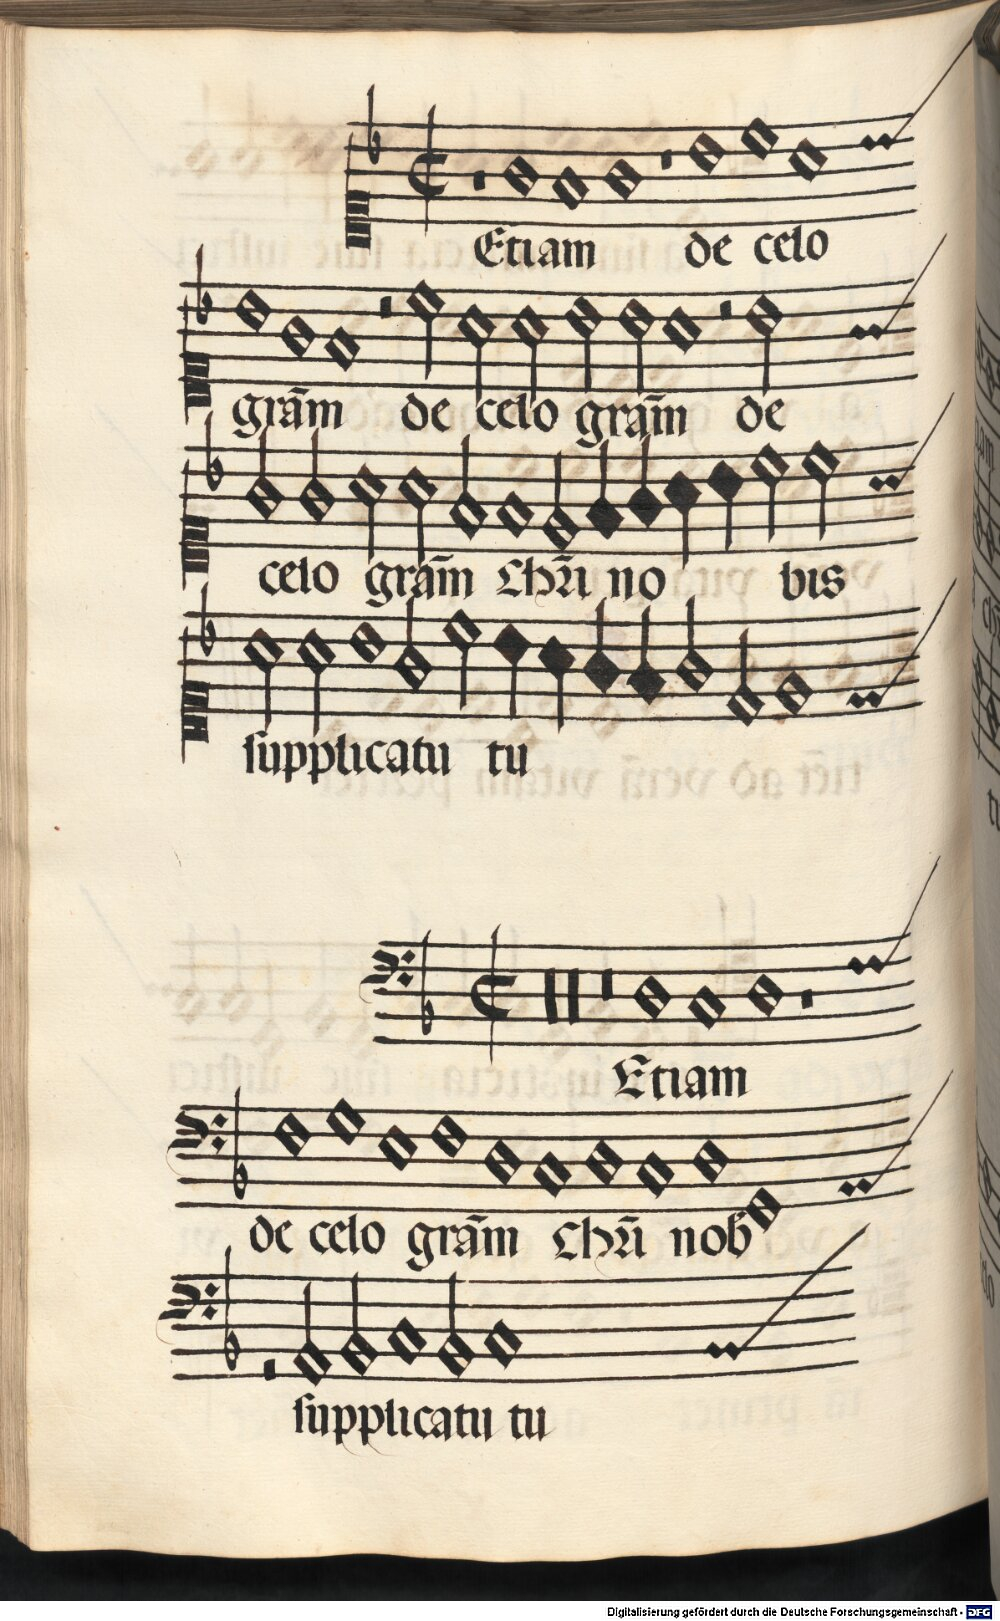 Etiam de celo
grãm de celo grãm de
celo grãm Chrĩ no bis
supplicatu tu
Etiam
de celo grãm Chrĩ nob
supplicatu tu
Digitalisierung gefördert durch die Deutsche Forschungsgemeinschaft - DFG